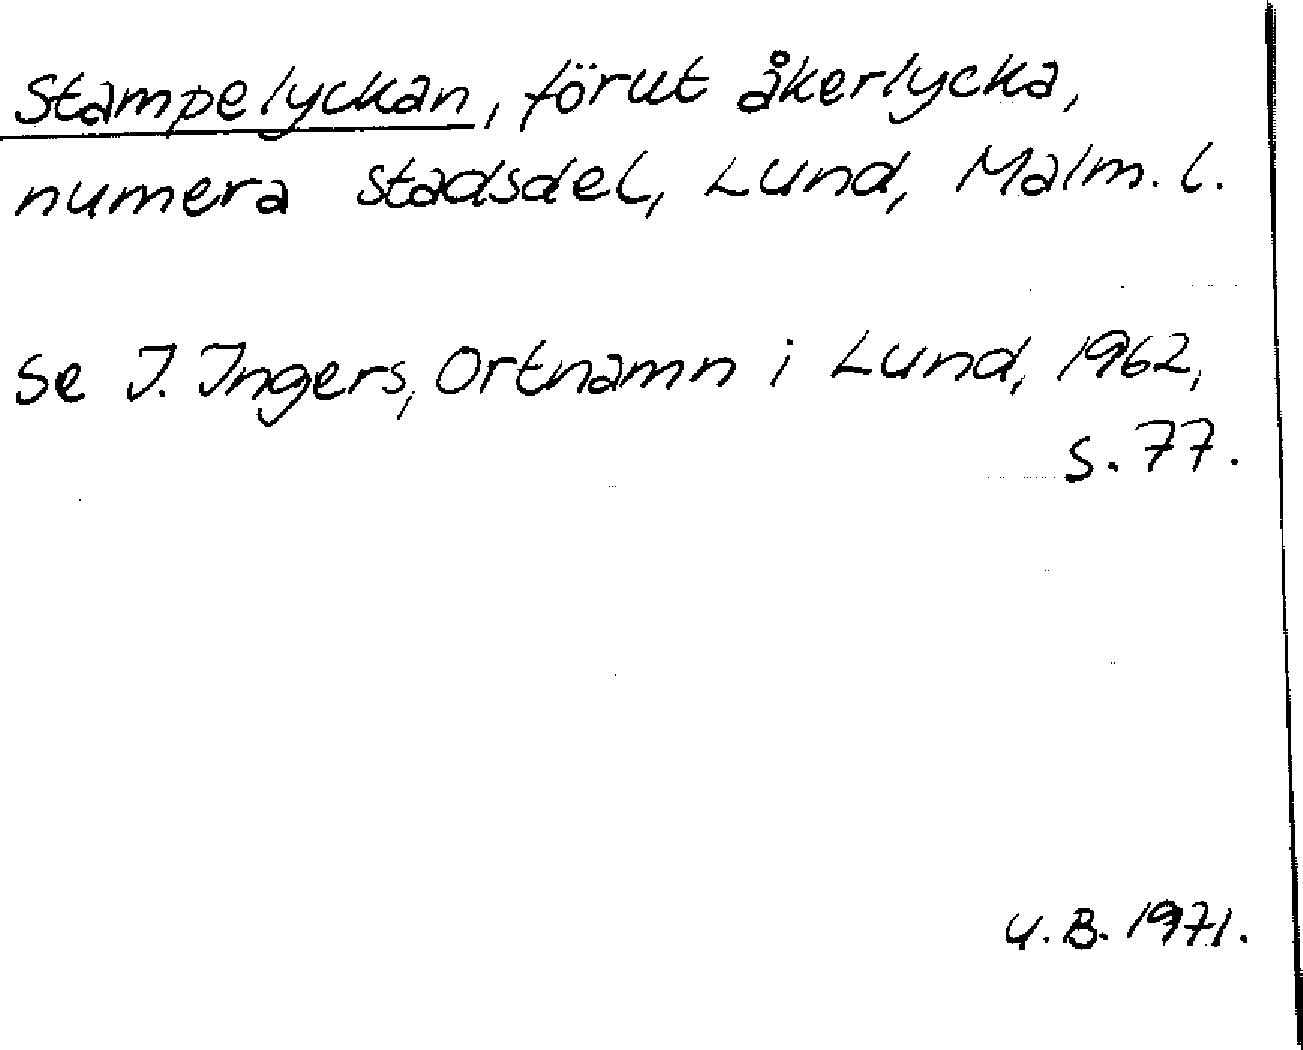 Stampelyckan, förut åkerlycka,
numera stadsdel, Lund, Malm. l.
Se I. Ingers, Ortnamn i Lund, 1962,
s. 77.
U. B. 1971.